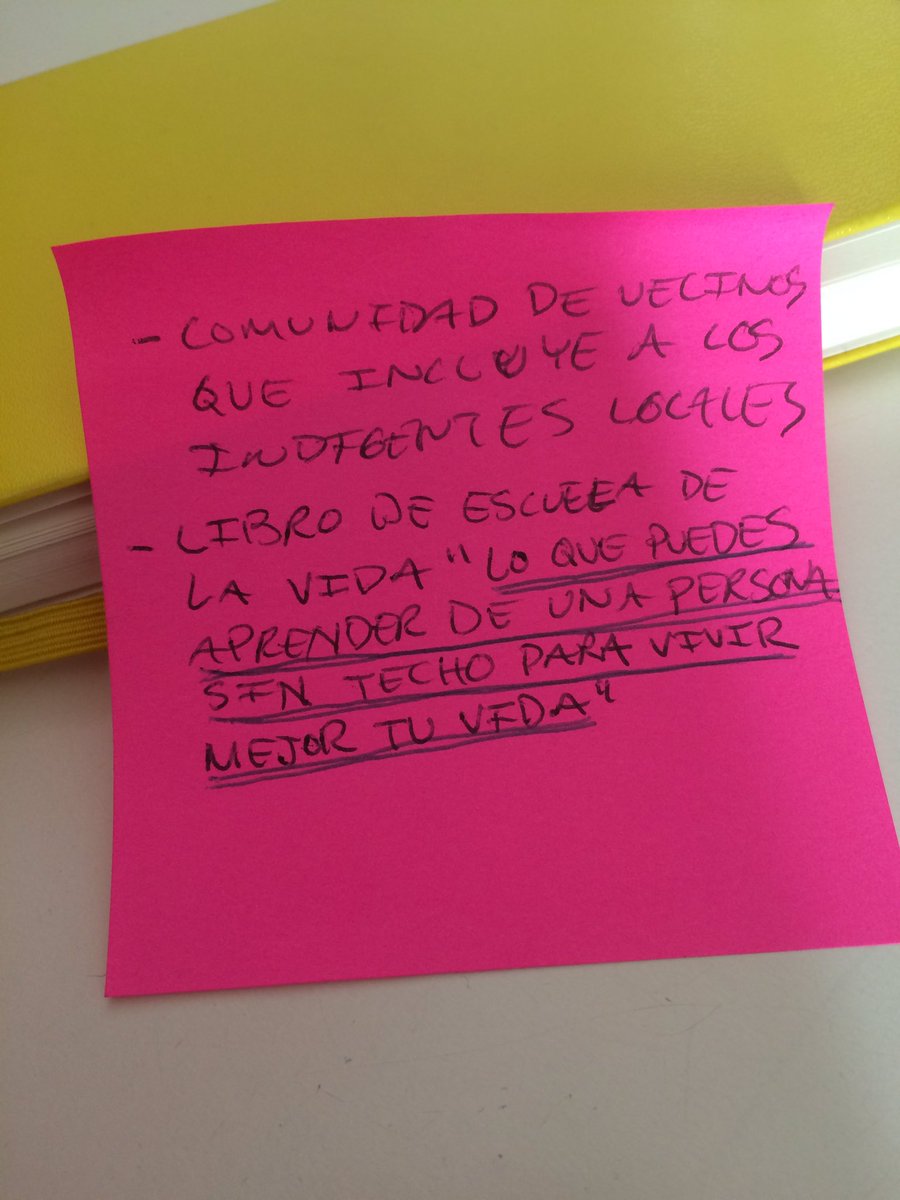 - COMUNIDAD DE VECINOS
QUE INCLUYE A LOS
INDIGENTES LOCALES
- LIBRO DE ESCUELA DE
LA VIDA "LO QUE PUEDES
APRENDER DE UNA PERSONA
SIN TECHO PARA VIVIR
MEJOR TU VIDA"